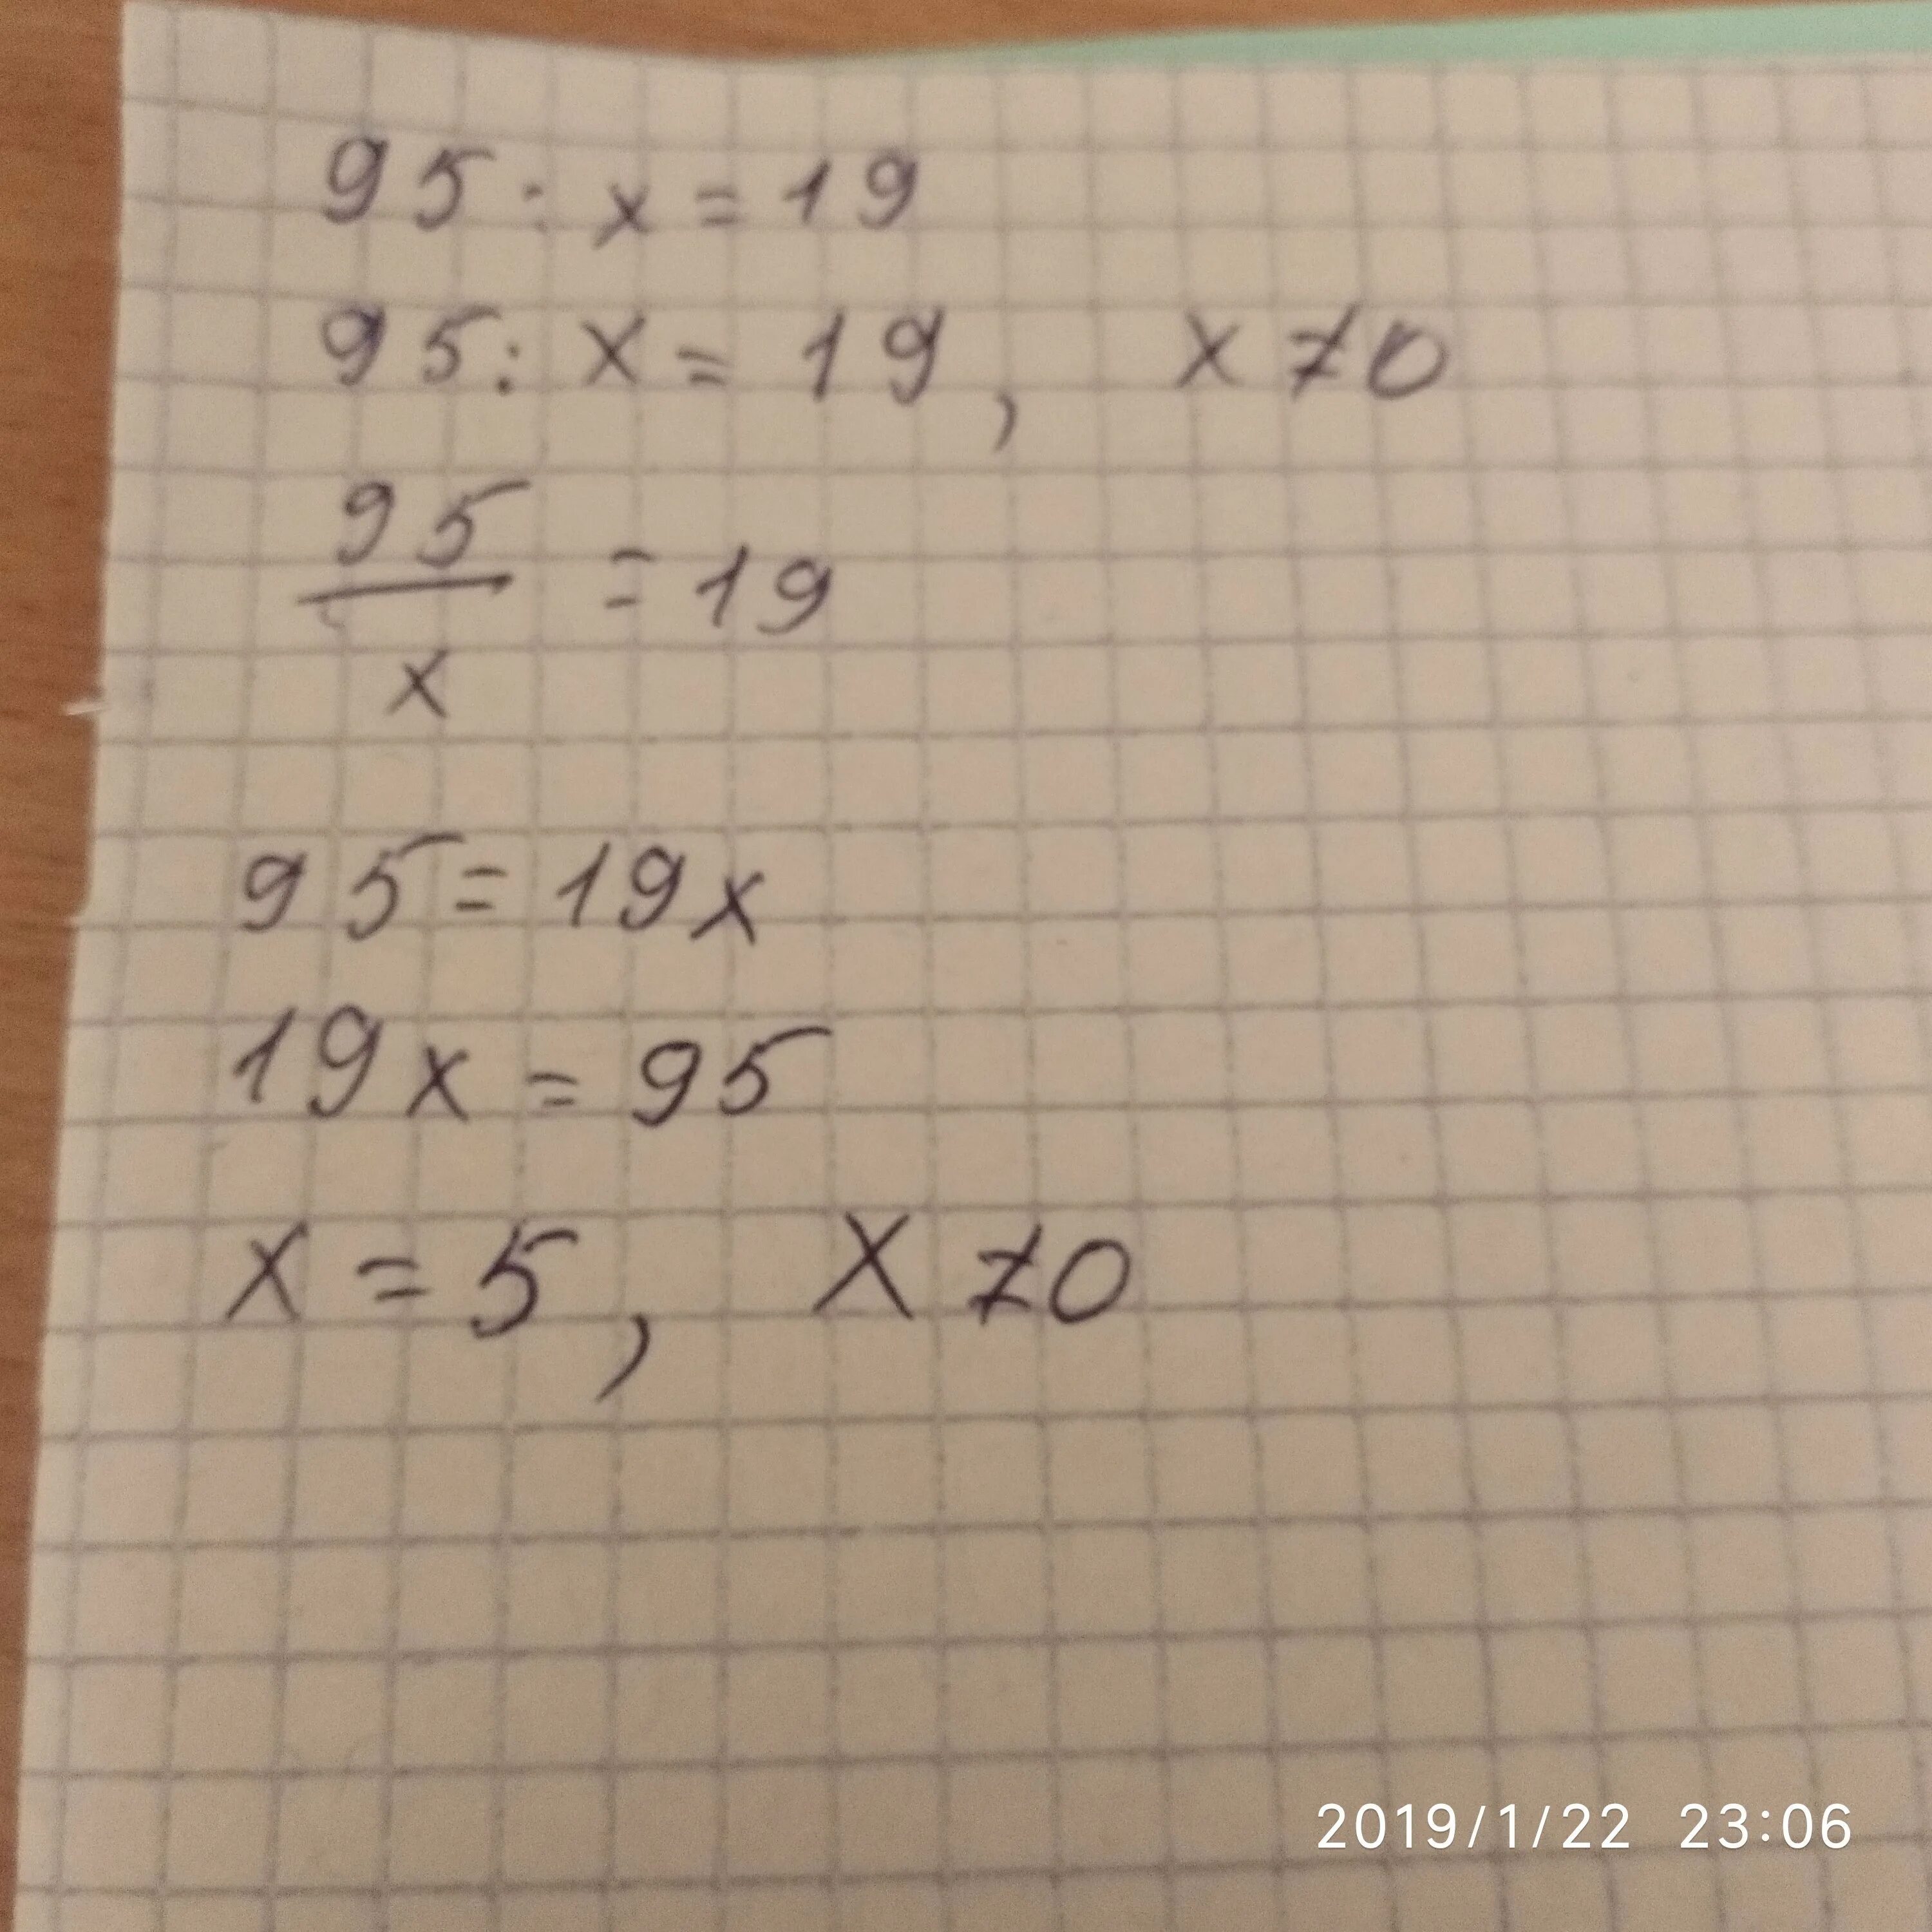 95 : x = 19
95 : x = 19, x ≠ 0
95
x = 19
95 = 19x
19x = 95
x = 5, x ≠ 0
2019/1/22 23:06